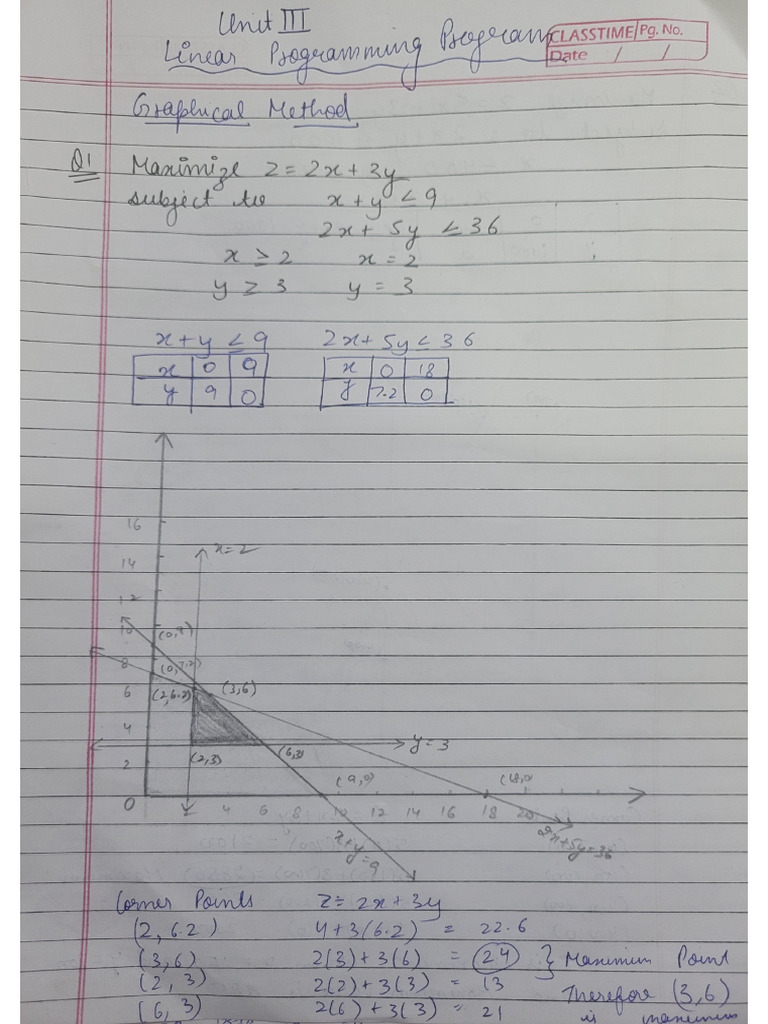 Unit III
Linear Programming Program
CLASSTIME Pg. No.
Date / /
Graphical Method
Q1 Maximize Z = 2x + 3y
subject to x + y ≤ 9
2x + 5y ≤ 36
x ≥ 2 x = 2
y ≥ 3 y = 3
x + y ≤ 9 2x + 5y ≤ 36
x 0 9 x 0 18
y 9 0 y 7.2 0
16
x = 2
14
12
10 (0,9)
8 (0,7.2)
6 (2,6.2) (3,6)
4
y = 3
(2,3) (6,3)
2
(9,0) (18,0
0 4 6 8 10 12 14 16 18 20
x+y=9 2x+5y=36
Corner Points Z = 2x + 3y
(2, 6.2) 4 + 3(6.2) = 22.6
(3, 6) 2(3) + 3(6) = 24 } Maximum Point
(2, 3) 2(2) + 3(3) = 13
Therefore (3,6)
(6, 3) 2(6) + 3(3) = 21
is maximum